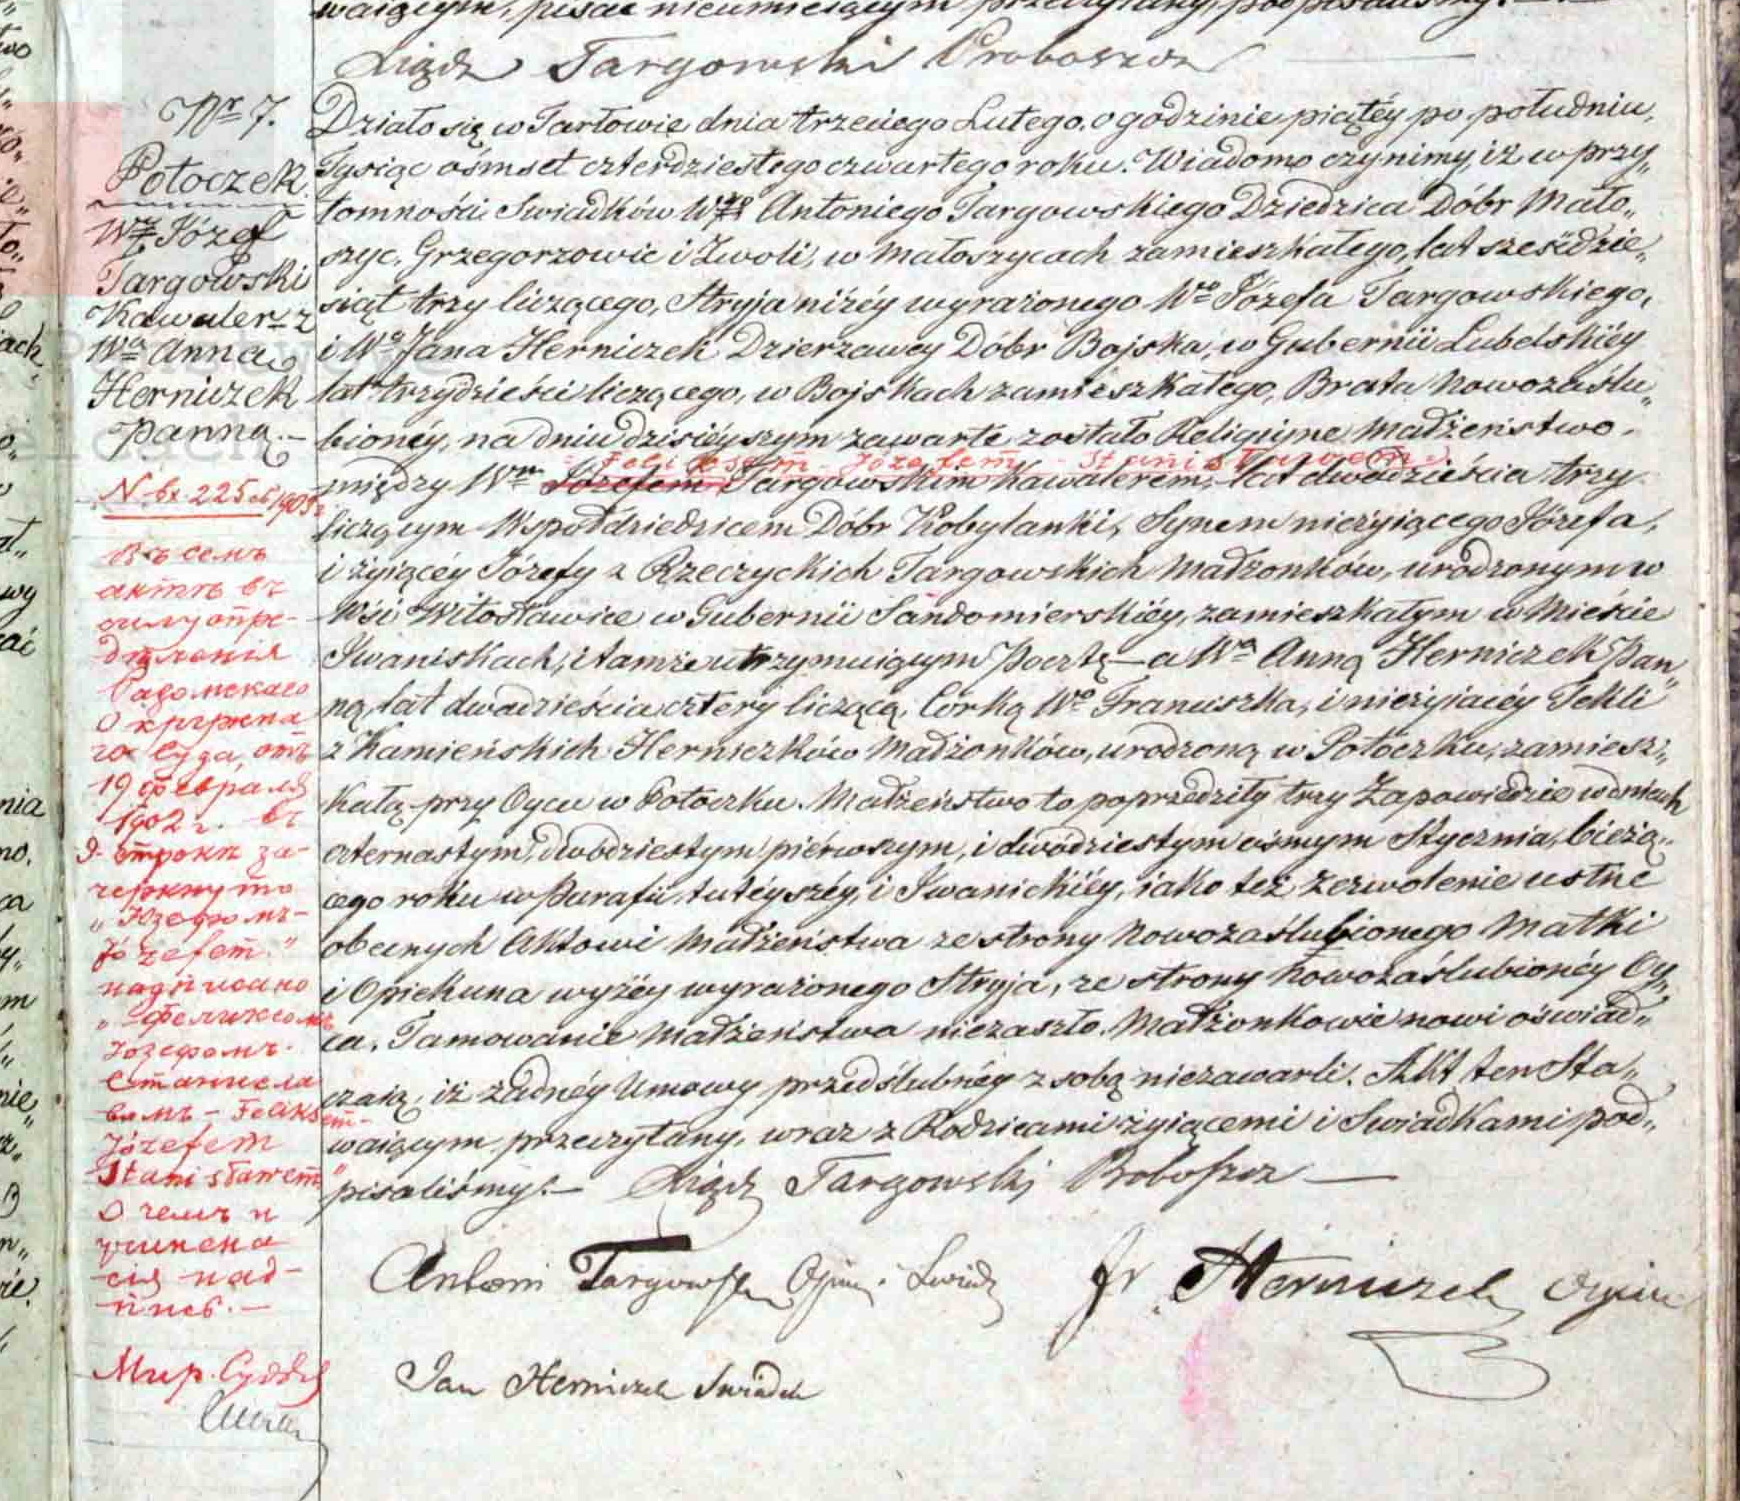 waiącym, pisać nieumieiącym przeczytany, podpisaliśmy.
Xiądz Targowski Proboszcz
Nr 7.
Potoczek.
Wny Józef
Targowski
Kawaler z
Wną Anną
Herniczek
Panną.
N. вх. 225
Въ семъ
актѣ въ
силу опре-
дѣленія
Радомскаго
Окружна
го Суда, отъ
19 февраля
1902 г. въ
9 строкѣ за-
черкнуто
„Юзефомъ-
Józefem"
надписано
„Феликсомъ
Іозефомъ.
Станисла
вомъ – Feliksem-
Józefem
Stanisławem"
О чемъ и
учинена
сія над-
пись. –
Мир. Судья
Działo się w Tarłowie dnia trzeciego Lutego, o godzinie piątéy po południu,
Tysiąc ośmset czterdziestego czwartego roku. Wiadomo czynimy, iż w przy„
tomności Swiadków Wgo Antoniego Targowskiego Dziedzica Dóbr Mało„
szyc, Grzegorzowic i Zwoli, w Małoszycach zamieszkałego, lat sześćdzie„
siąt trzy liczącego, Stryja niżéy wyrażonego Wgo Józefa Targowskiego,
i Wo Jana Herniczek Dzierzawcy Dóbr Bojska, w Gubernii Lubelskiéy
lat trzydzieści liczącego, w Bojskach zamieszkałego, Brata Nowozaślu„
bionéy, na dniu dzisiéyszym zawarte zostało Religijne Małżeństwo,
Feliksem - Józefem - Stanisławem
między Wm Józefem Targowskim Kawalerem, lat dwadzieścia trzy
liczącym Współdziedzicem Dóbr Kobylanki, Synem nieżyiącego Józefa,
i żyiącéy Józefy z Rzeczyckich Targowskich Małżonków, urodzonym w
Wsi Witosławice w Gubernii Sandomierskiéy, zamieszkałym w Mieście
Iwaniskach, i tamże utrzymuiącym Pocztę – a Wą Anną Herniczek Pan„
ną, lat dwadzieścia cztery liczącą, Córką Wo Franciszka, i nieżyiacéy Tekli
z Kamieńskich Herniczków Małżonków, urodzoną w Potoczku, zamiesz„
kałą przy Oycu w Potoczku. Małżeństwo to poprzedziły trzy Zapowiedzie w dniach
czternastym, dwódziestym piérwszym, i dwódziestym ósmym Stycznia, bieżą„
cego roku w Parafii tutéyszéy, i Iwanickiéy, iako też zezwolenie ustne
obecnych Aktowi Małżeństwa ze strony Nowozaślubionego Matki
i Opiekuna wyżéy wyrażonego Stryja, ze strony Nowozaślubionéy Oy„
ca. Tamowanie Małżeństwa niezaszło. Małżonkowie nowi oświad„
czaią, iż żadnéy Umowy przedślubnéy z sobą niezawarli. Akt ten Sta„
waiącym przeczytany, wraz z Rodzicami żyiącemi i Swiadkami pod„
pisaliśmy. – Xiądz Targowski Proboszcz
Antoni Targowski Opiu. i Swiadk
Fr Herniczek Oyciec
Jan Herniczek Swiadek